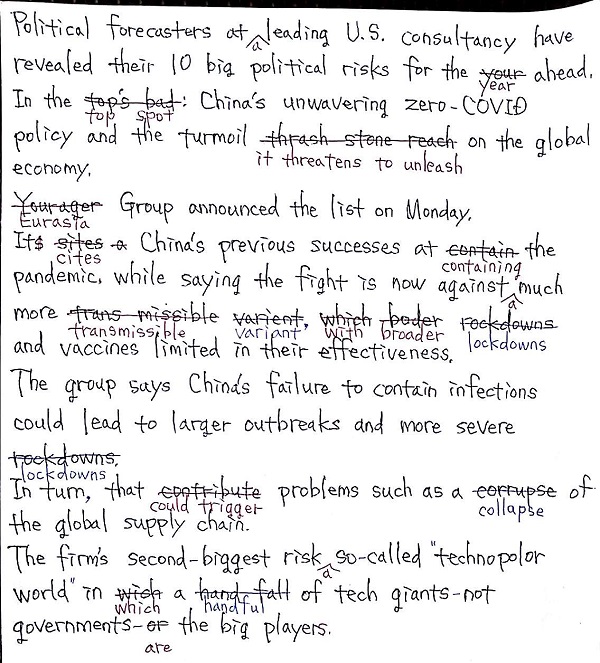 Political forecasters at leading U.S. consultancy have
a
revealed their 10 big political risks for the your ahead.
year
In the top's bad: China's unwavering zero-COVID
top spot
policy and the turmoil thrash stone reach on the global
it threatens to unleash
economy.
Yourager Group announced the list on Monday.
Eurasia
Its sites a China's previous successes at contain the
cites containing
pandemic, while saying the fight is now against much
a
more trans missible varient, which boder rockdowns
transmissible variant with broader lockdowns
and vaccines limited in their effectiveness.
The group says China's failure to contain infections
could lead to larger outbreaks and more severe
rockdowns.
lockdowns
In turn, that contribute problems such as a corrupse of
could trigger collapse
the global supply chain.
The firm's second-biggest risk so-called "technopolor
a
world" in wich a hand fall of tech giants-not
which handful
governments-or the big players.
are